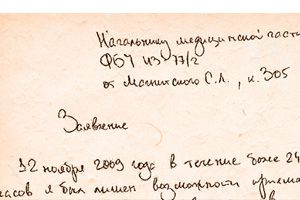 Начальнику медицинской части
ФБУ ИЗ 77/2
от Магнитского С.Л., к. 305
Заявление
12 ноября 2009 года в течение более 24
часов я был лишен возможности